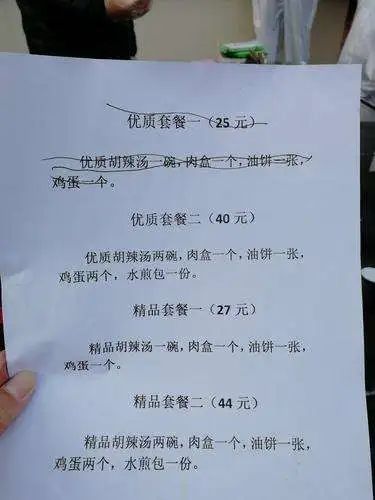 优质套餐一（25 元）
优质胡辣汤一碗，肉盒一个，油饼一张，
鸡蛋一个。
优质套餐二（40 元）
优质胡辣汤两碗，肉盒一个，油饼一张，
鸡蛋两个，水煎包一份。
精品套餐一（27 元）
精品胡辣汤一碗，肉盒一个，油饼一张，
鸡蛋一个。
精品套餐二（44 元）
精品胡辣汤两碗，肉盒一个，油饼一张，
鸡蛋两个，水煎包一份。